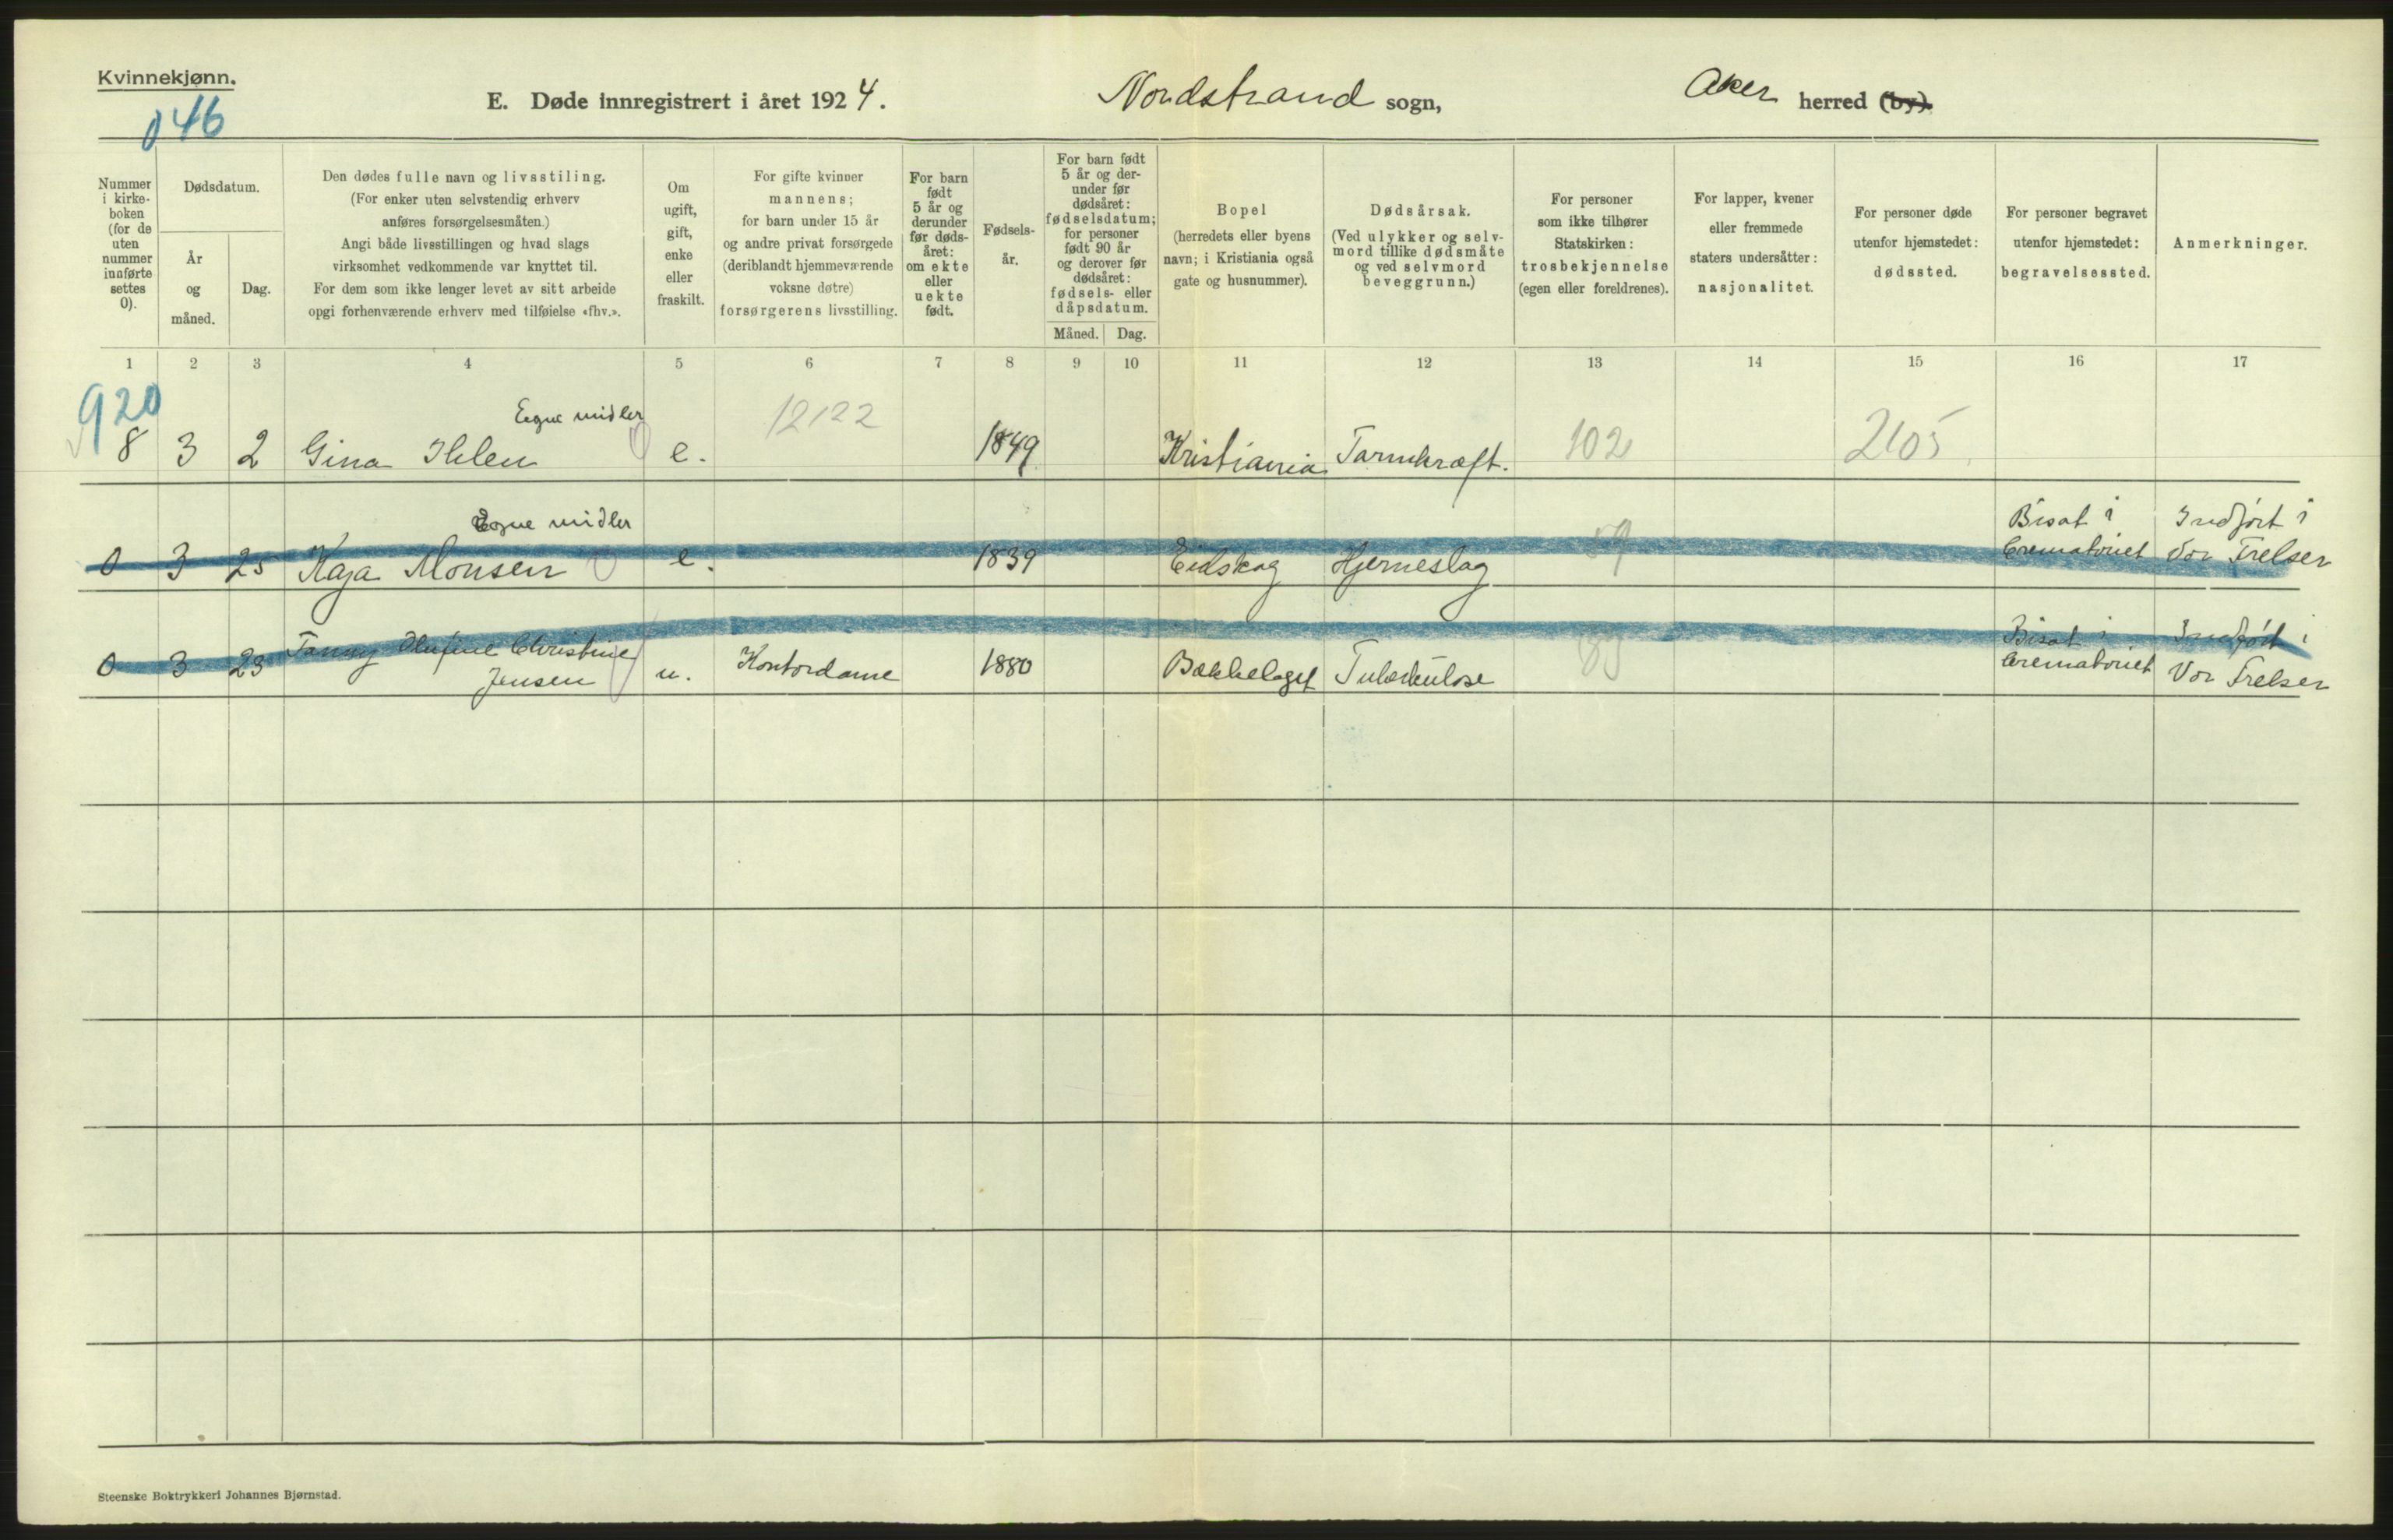 Kvinnekjønn.
046
E. Døde innregistrert i året 1924.
Nordstrand sogn,
Aker herred (by).
Nummer i kirke-boken (for de uten nummer innførte settes 0).
Dødsdatum.
År og måned.
Dag.
Den dødes fulle navn og livsstiling.
(For enker uten selvstendig erhverv
anføres forsørgelsesmåten.)
Angi både livsstillingen og hvad slags
virksomhet vedkommende var knyttet til.
For dem som ikke lenger levet av sitt arbeide
opgi forhenværende erhverv med tilføielse «fhv.».
Om
ugift,
gift,
enke
eller
fraskilt.
For gifte kvinner
mannens;
for barn under 15 år
og andre privat forsørgede
(deriblandt hjemmeværende
voksne døtre)
forsørgerens livsstilling.
For barn
født
5 år og
derunder
før døds-
året:
om ekte
eller
uekte
født.
Fødsels-
år.
For barn født
5 år og der-
under før
dødsåret:
fødselsdatum;
for personer
født 90 år
og derover før
dødsåret:
fødsels- eller
dåpsdatum.
Måned. Dag.
Bopel
(herredets eller byens
navn; i Kristiania også
gate og husnummer).
Dødsårsak.
(Ved ulykker og selv-
mord tillike dødsmåte
og ved selvmord
beveggrunn.)
For personer
som ikke tilhører
Statskirken:
trosbekjennelse
(egen eller foreldrenes).
For lapper, kvener
eller fremmede
staters undersåtter:
nasjonalitet.
For personer døde
utenfor hjemstedet:
dødssted.
For personer begravet
utenfor hjemstedet:
begravelsessted.
Anmerkninger.
1 2 3 4 5 6 7 8 9 10 11 12 13 14 15 16 17
920
Egne midler
12122
8 3 2 Gina Ihlen e. 1849 Kristiania Tarmkræft. 102 2105
Egne midler
Bisat i Indført i
0 3 25 Kaja Monsen e. 1839 Eidskog Hjerneslag 59 Crematoriet Vor Frelser
Fanny Olufine Christine Bisat i Indført i
0 3 23 Jensen u. Kontordame 1880 Bækkelaget Tuberkulose Crematoriet Vor Frelser
Steenske Boktrykkeri Johannes Bjørnstad.